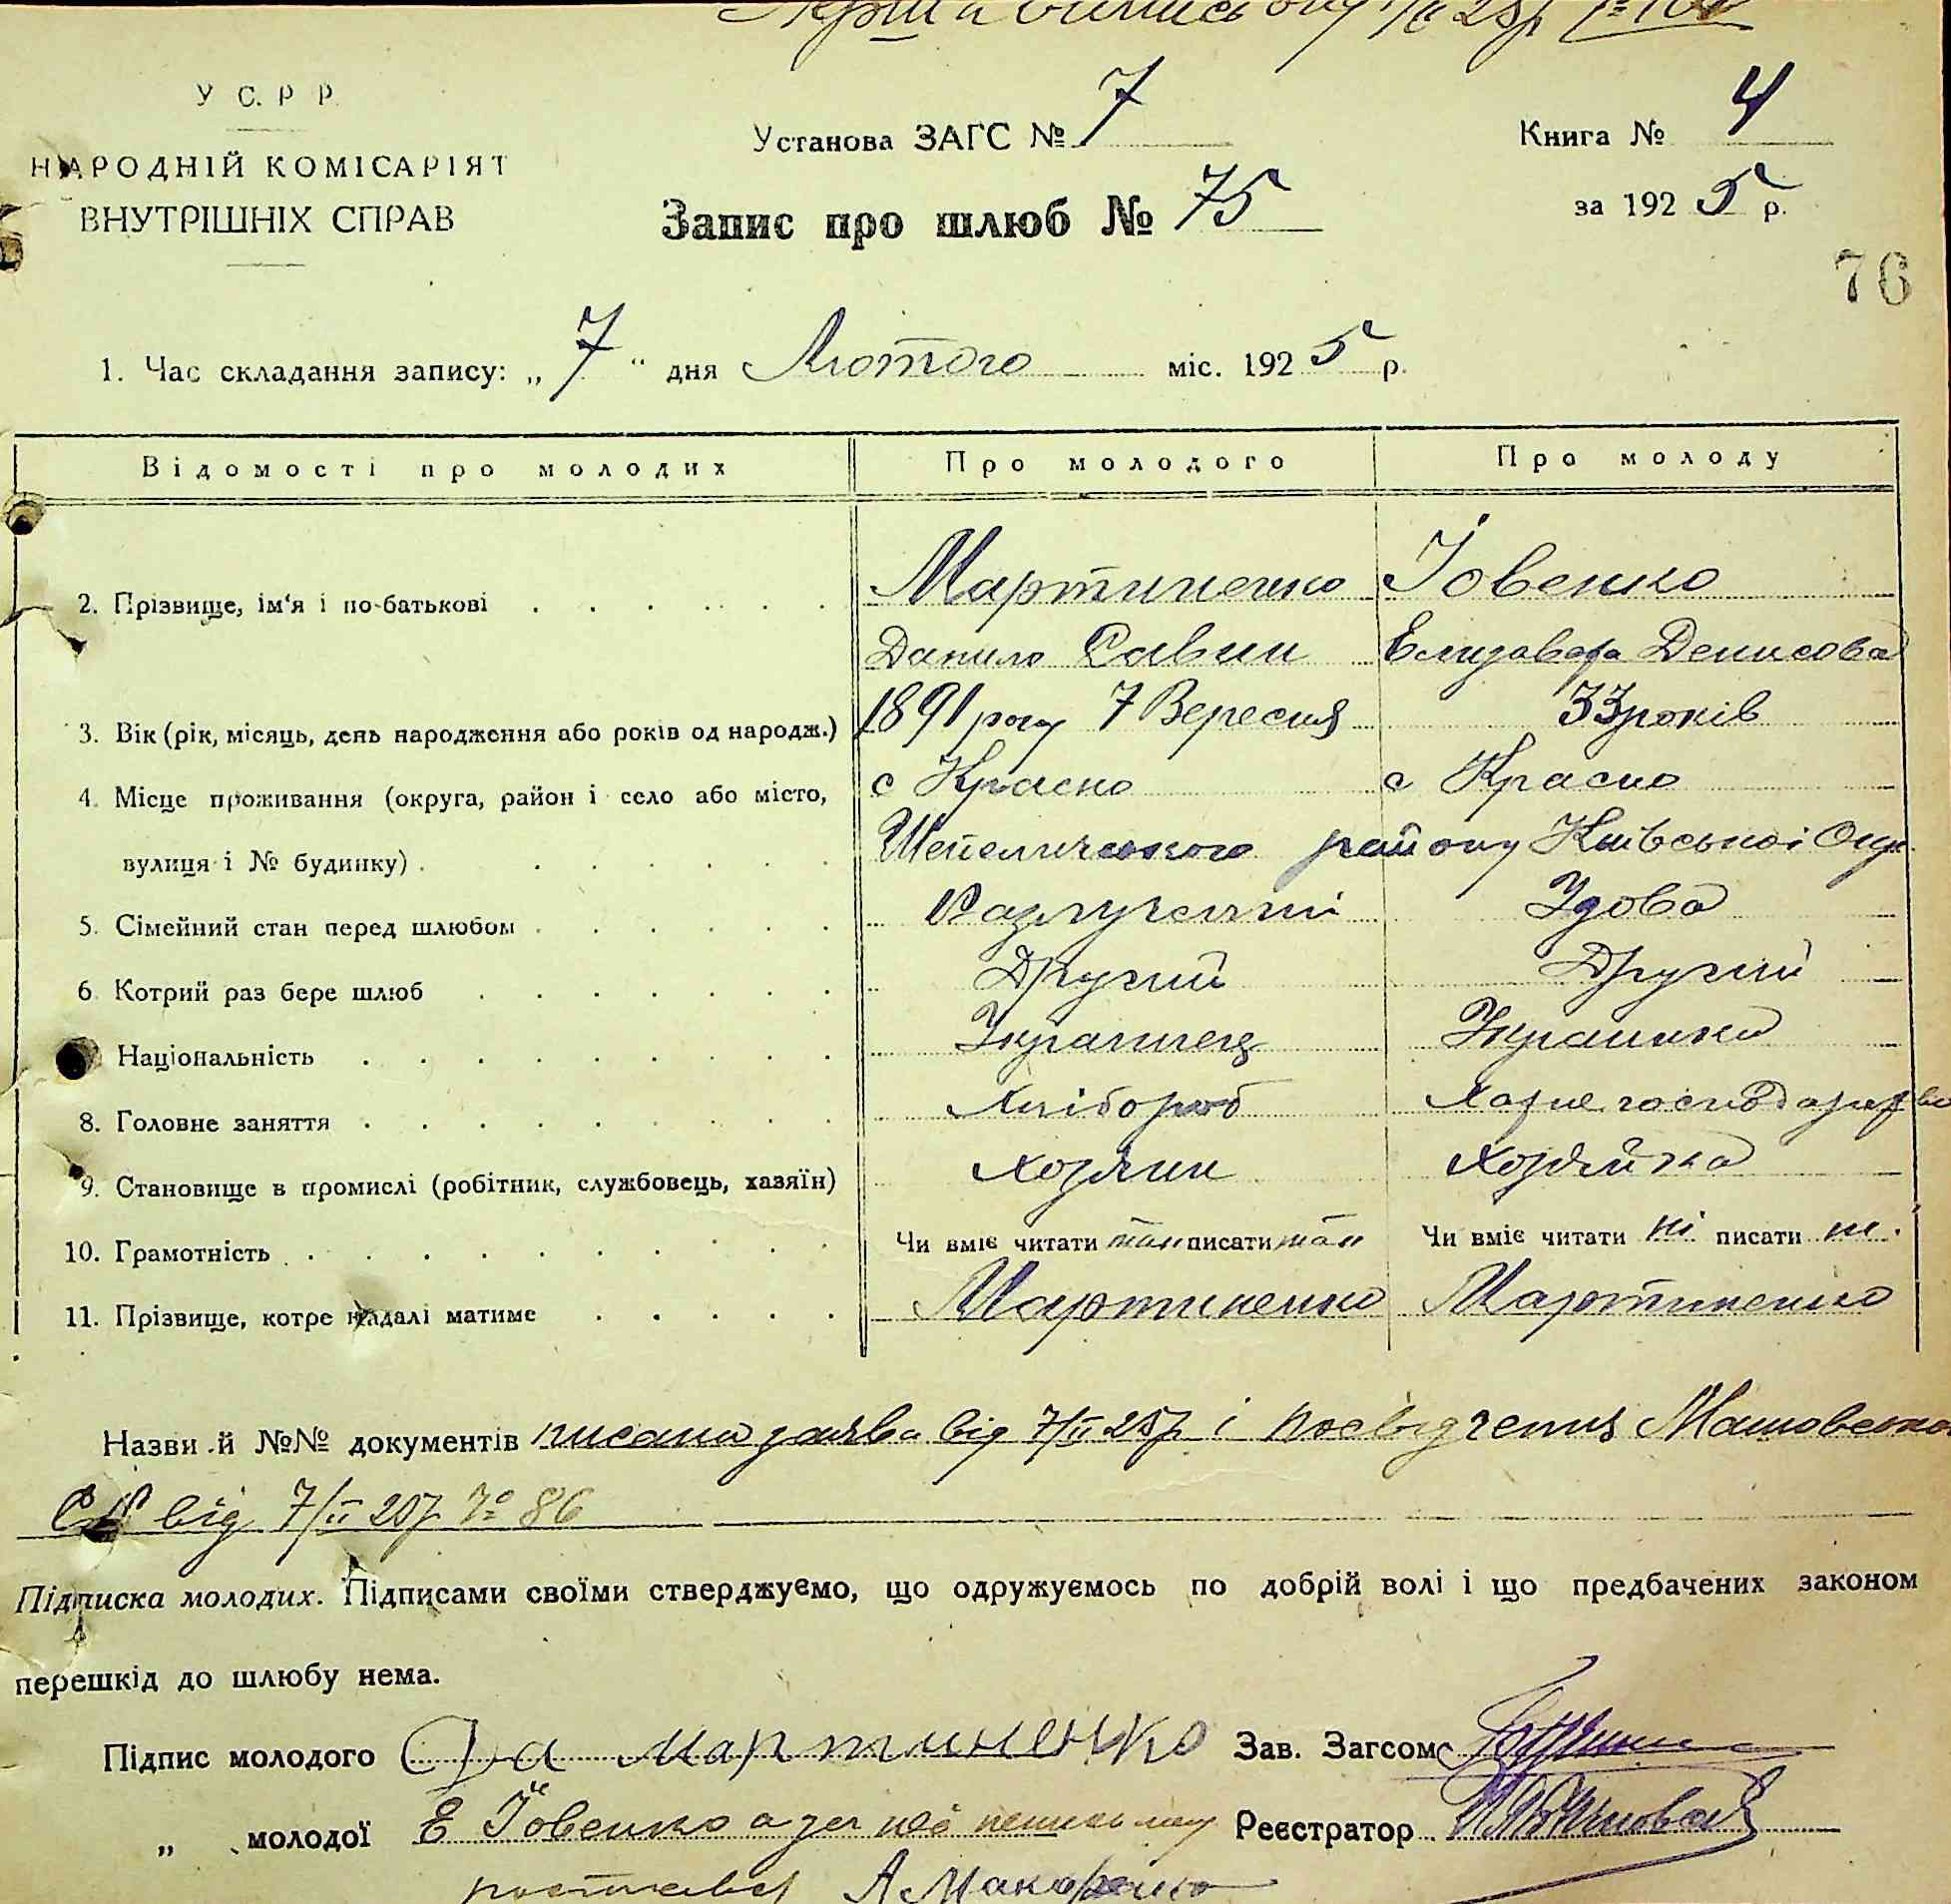 У С. Р Р.
НАРОДНІЙ КОМІСАРІЯТ
ВНУТРІШНІХ СПРАВ
Установа ЗАГС № 7
Запис про шлюб № 75
Книга № 4
за 1925 р.
76
1. Час складання запису: „7“ дня Лютого міс. 1925 р.
Відомості про молодих Про молодого Про молоду
2. Прізвище, ім‘я і по-батькові Мартиненко Йовенко
Данило Савин Елизавета Денисова
3. Вік (рік, місяць, день народження або років од народж.) 1891 року 7 Вересня 33 років
4. Місце проживання (округа, район і село або місто, с Красно с Красно
вулиця і № будинку) Шепеличського району Київської Окр.
5. Сімейний стан перед шлюбом Разлучений Удова
6 Котрий раз бере шлюб Другий Другий
Національність Украинец Украинка
8. Головне заняття Хлібороб Хатне господарство
9. Становище в промислі (робітник, службовець, хазяїн) Хозяин Хозяйка
10. Грамотність Чи вміє читати так писати так Чи вміє читати ні писати ні.
11. Прізвище, котре надалі матиме Мартиненко Мартиненко
Назви й №№ документів писана заява від 7/II 25р і посвідчення Машовской
СР від 7/II 25р № 86
Підписка молодих. Підписами своїми стверджуємо, що одружуємось по добрій волі і що предбачених законом
перешкід до шлюбу нема.
Підпис молодого Да Мартиненко Зав. Загсом
„ молодої Е Йовенко а за неё Реєстратор
А Макаренко